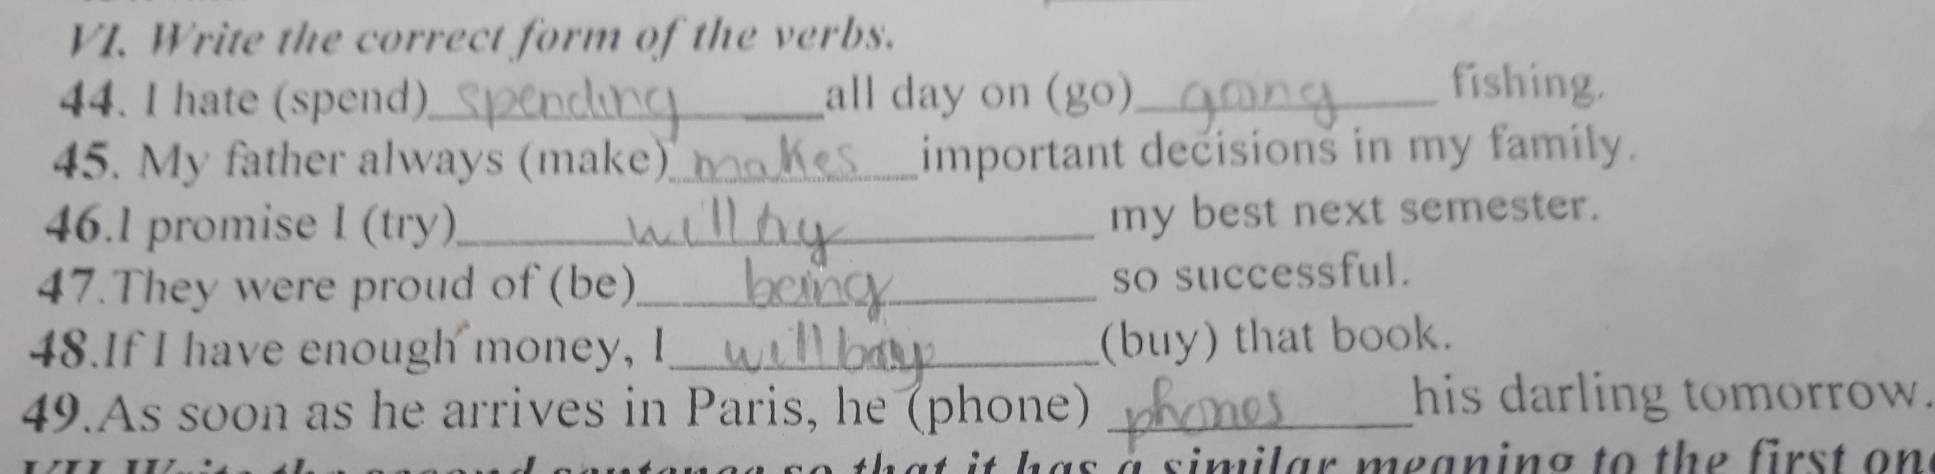 VI. Write the correct form of the verbs.
44. I hate (spend) spending all day on (go) going fishing.
45. My father always (make) makes important decisions in my family.
46.I promise I (try) will try my best next semester.
47.They were proud of (be) being so successful.
48.If I have enough money, I will buy (buy) that book.
49.As soon as he arrives in Paris, he (phone) phones his darling tomorrow.
VII Write the second sentence so that it has a similar meaning to the first one